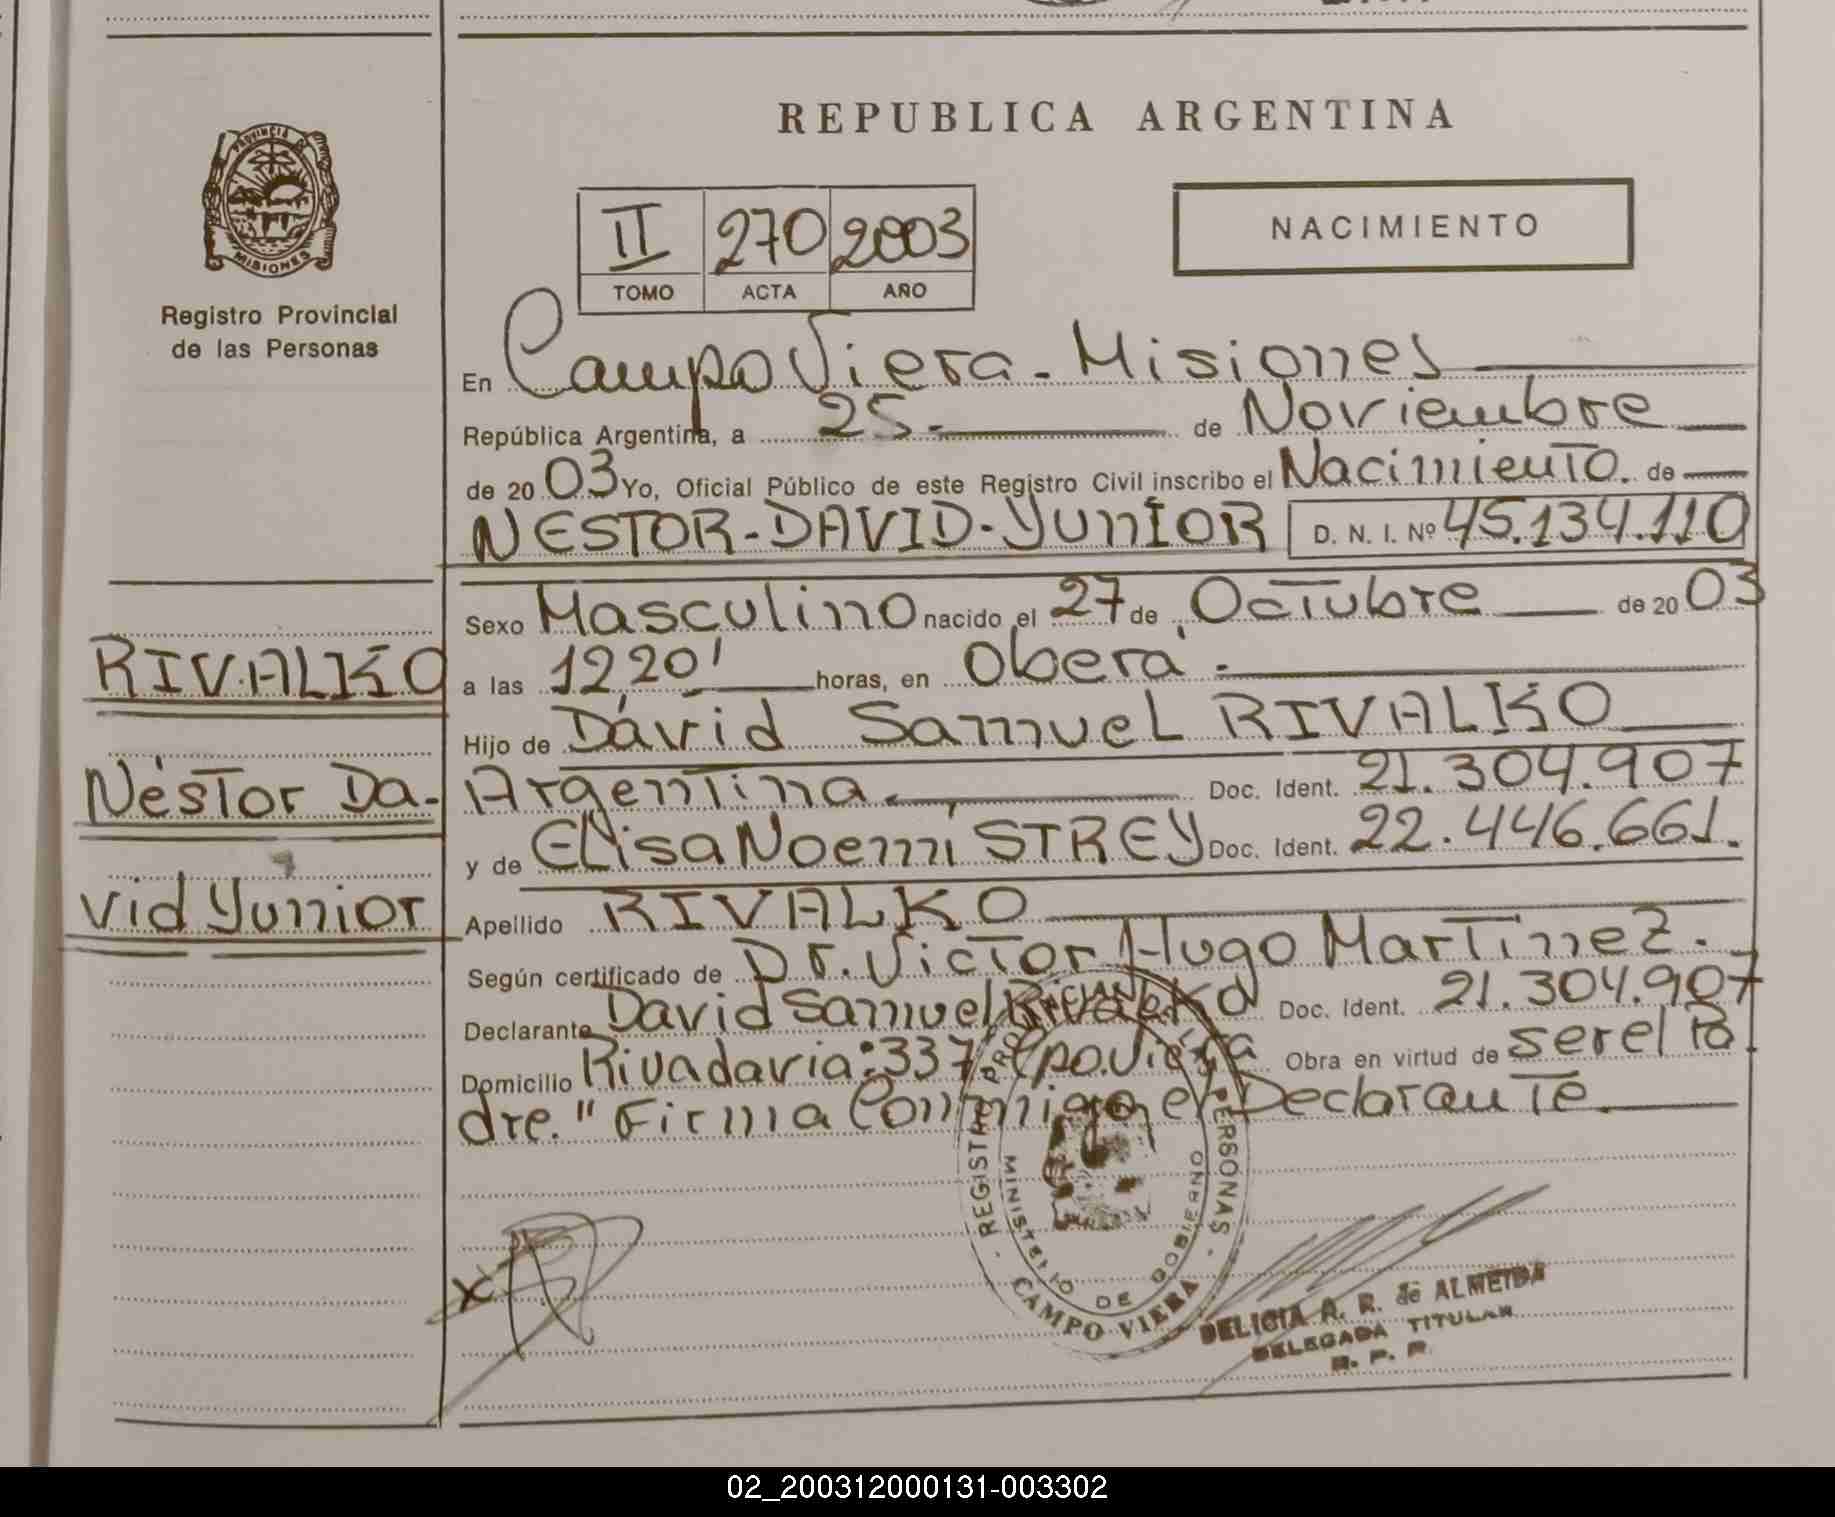 PROVINCIA DE
MISIONES
Registro Provincial
de las Personas
RIVALKO
Néstor Da-
vid Yunior
REPUBLICA ARGENTINA
II 270 2003
TOMO ACTA AÑO
NACIMIENTO
En Campo Viera - Misiones
República Argentina, a 25 de Noviembre
de 2003 Yo, Oficial Público de este Registro Civil inscribo el Nacimiento. de
NESTOR-DAVID-YUNIOR D. N. I. Nº 45.134.110
Sexo Masculino nacido el 27 de Octubre de 2003
a las 12,20' horas, en Oberá.
Hijo de David Samuel RIVALKO
Argentina Doc. Ident. 21.304.907
y de Elisa Noemí STREY Doc. Ident. 22.446.661.
Apellido RIVALKO
Según certificado de Dr. Victor Hugo Martinez.
Declarante David Samuel Rivalko Doc. Ident. 21.304.907
Domicilio Rivadavia:337 Cpo.Viera Obra en virtud de ser el Pa
dre." Firma Conmigo el Declarante.
REGISTRO PROVINCIAL DE LAS PERSONAS
MINISTERIO DE GOBIERNO
CAMPO VIERA
X
DELICIA A. R. de ALMEIDA
DELEGADA TITULAR
R. P. P.
02_200312000131-003302